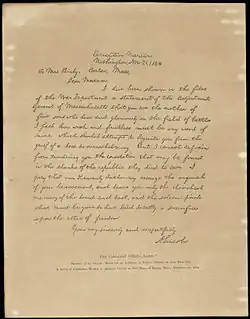 Executive Mansion
Washington, Nov 21, 1864
To Mrs Bixby, Boston, Mass.
Dear Madam,
I have been shown in the files
of the War Department a statement of the Adjutant
General of Massachusetts that you are the mother of
five sons who have died gloriously on the field of battle.
I feel how weak and fruitless must be any word of
mine which should attempt to beguile you from the
grief of a loss so overwhelming. But I cannot refrain
from tendering you the consolation that may be found
in the thanks of the republic they died to save. I
pray that our Heavenly Father may assuage the anguish
of your bereavement, and leave you only the cherished
memory of the loved and lost, and the solemn pride
that must be yours to have laid so costly a sacrifice
upon the altar of freedom
Yours very sincerely and respectfully
A. Lincoln